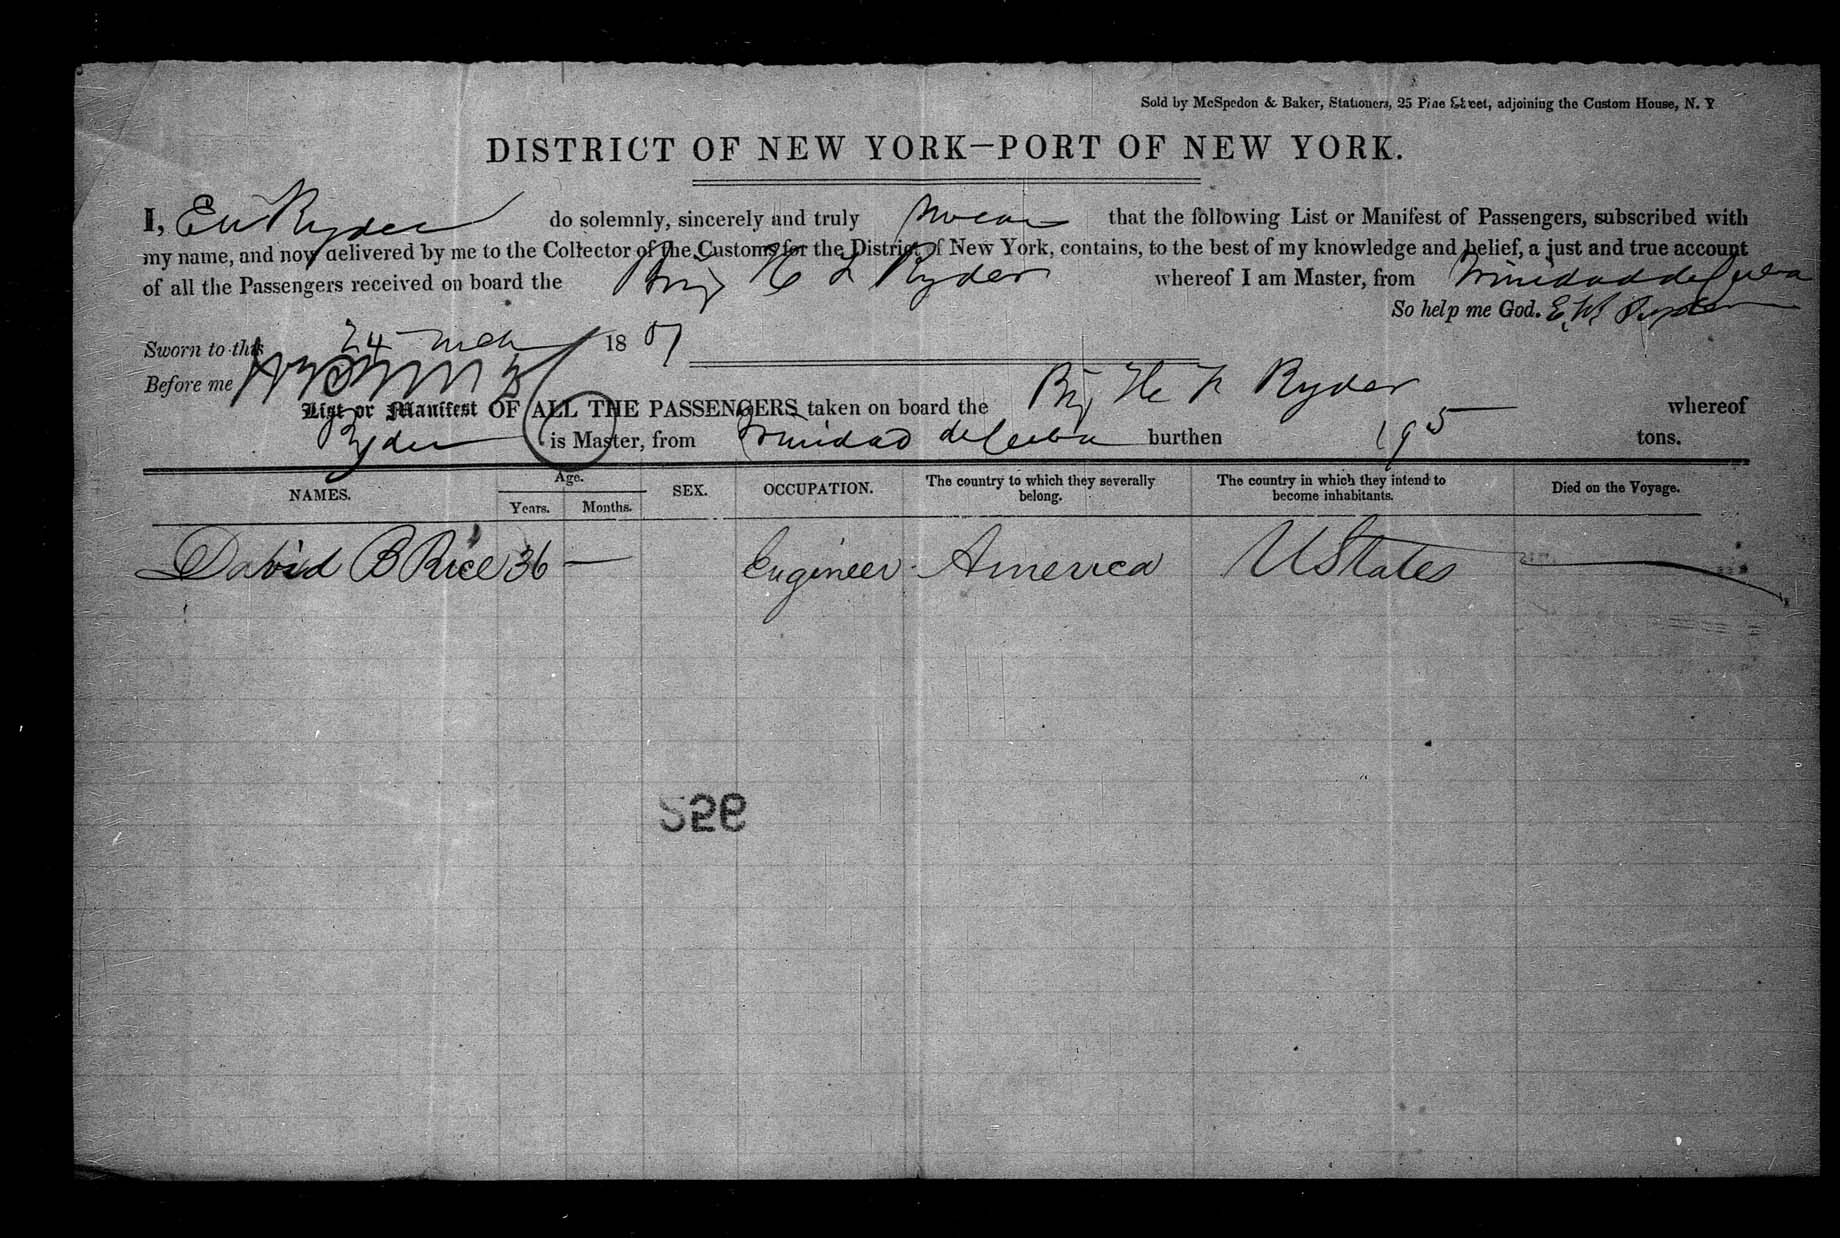 Sold by McSpedon & Baker, Stationers, 25 Pine Street, adjoining the Custom House, N. Y
DISTRICT OF NEW YORK—PORT OF NEW YORK.
I, E W Ryder do solemnly, sincerely and truly swear that the following List or Manifest of Passengers, subscribed with
my name, and now delivered by me to the Collector of the Customs for the District of New York, contains, to the best of my knowledge and belief, a just and true account
of all the Passengers received on board the Brig Ryder whereof I am Master, from Trinidad de Cuba
So help me God. E. W. Ryder
Sworn to this 24 Mch 18
Before me
List or Manifest OF ALL THE PASSENGERS taken on board the Brig Ryder whereof
Ryder is Master, from Trinidad de Cuba burthen 195 tons.
NAMES. Age. Years. Months. SEX. OCCUPATION. The country to which they severally belong. The country in which they intend to become inhabitants. Died on the Voyage.
David B Rice 36 — Engineer America U States —